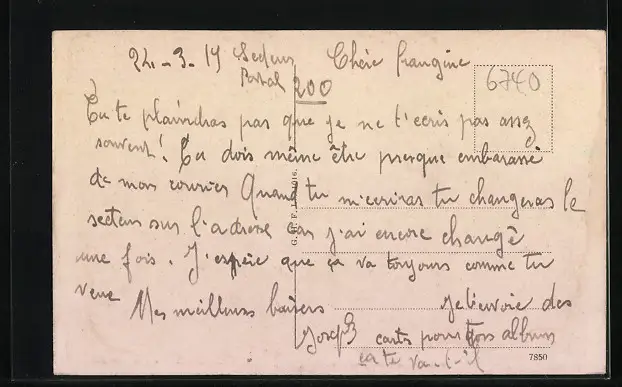 24-3-17 Secteur Chère frangine
Postal 200
6740
Tu te plaindras pas que je ne t'ecris pas assez
souvent! Tu dois même être presque embarassé
de mon courrier Quand tu m'ecriras tu changeras le
secteur sur l'adresse car j'ai encore changé
une fois. J'espère que ça va toujours comme tu
veux Mes meilleurs baisers Je t'envoie des
Josep cartes pour ton album
ça te va-t-il
7850